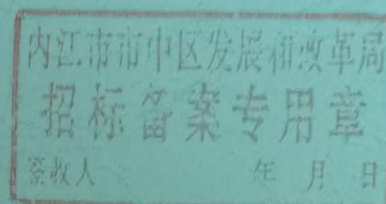 内江市市中区发展和改革局
招标备案专用章
签收人 年 月 日